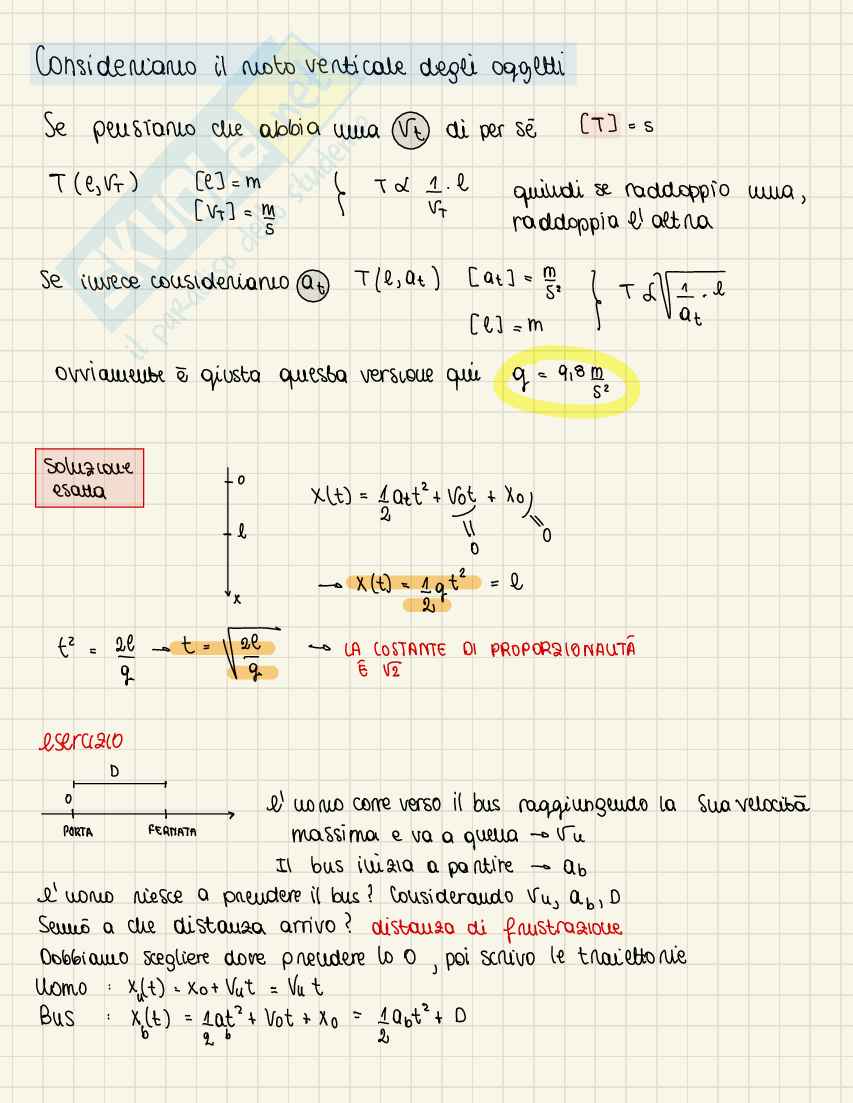 Consideriamo il moto verticale degli oggetti
Se pensiamo che abbia una Vt di per sé [T] = s
T(l, VT) [l] = m } T ∝ 1/VT · l quindi se raddoppio una,
[VT] = m/s raddoppia l'altra
Se invece consideriamo at T(l, at) [at] = m/s² } T ∝ √(1/at · l)
[l] = m
ovviamente è giusta questa versione qui g = 9,8 m/s²
Soluzione
esatta
0
l
x
x(t) = 1/2 at t² + V0t + x0
0
0
→ x(t) = 1/2 g t² = l
t² = 2l/g → t = √(2l/g) → LA COSTANTE DI PROPORZIONALITÀ
È √2
esercizio
D
0
PORTA FERMATA
l'uomo corre verso il bus raggiungendo la sua velocità
massima e va a quella → Vu
Il bus inizia a partire → ab
l'uomo riesce a prendere il bus? Considerando Vu, ab, D
Sennò a che distanza arrivo? distanza di frustrazione
Dobbiamo scegliere dove prendere lo 0, poi scrivo le traiettorie
Uomo : xu(t) = x0 + Vut = Vu t
Bus : xb(t) = 1/2 abt² + V0t + x0 = 1/2 abt² + D
SKUOLA.net
il paradiso dello studente